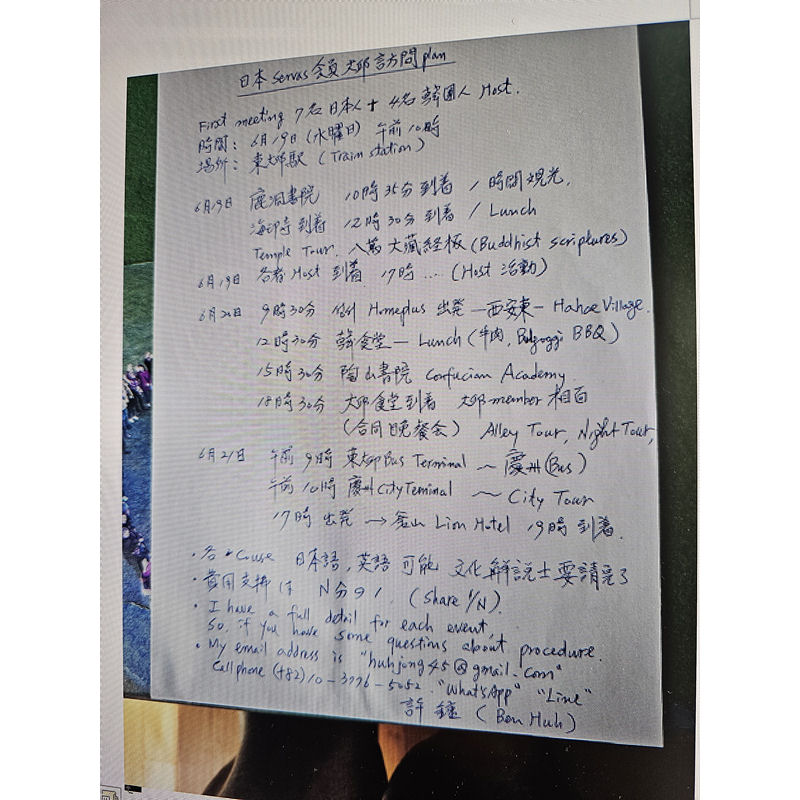 日本 Servas 会員 大邱 訪問 plan
First meeting 7名 日本人 + 4名 韓国人 Host.
時間: 6月19日 (水曜日) 午前 10時
場所: 東大邱駅 (Train station)
6月19日 鹿洞書院 10時 35分 到着 / 時間 観光.
海印寺 到着 12時 30分 到着 / Lunch
Temple Tour. 八萬 大藏経板 (Buddhist scriptures)
6月19日 各者 Host 到着 17時 .... (Host 活動)
6月20日 9時30分 Homeplus 出発 — 西安東 — Hahoe Village.
12時30分 韓食堂 — Lunch (牛肉, Bulgoggi BBQ)
15時30分 陶山書院 Confucian Academy
18時30分 大邱食堂 到着 大邱 member 相面
(合同 晩餐会) Alley Tour, Night Tour,
6月21日 午前 9時 東大邱 Bus Terminal ~ 慶州 (Bus)
午前 10時 慶州 City Terminal ~ City Tour
17時 出発 → 釜山 Lion Hotel 19時 到着.
• 各 Couse 日本語, 英語 可能 文化解説士 要請 完了
• 費用 支拂 는 N分의 1. (Share 1/N).
• I have a full detail for each event.
So, if you have some questions about procedure.
• My email address is "huhjong45@gmail.com"
Call phone (+82) 10-3776-5052. "WhatsApp" "Line"
許 鐘 (Ben Huh)